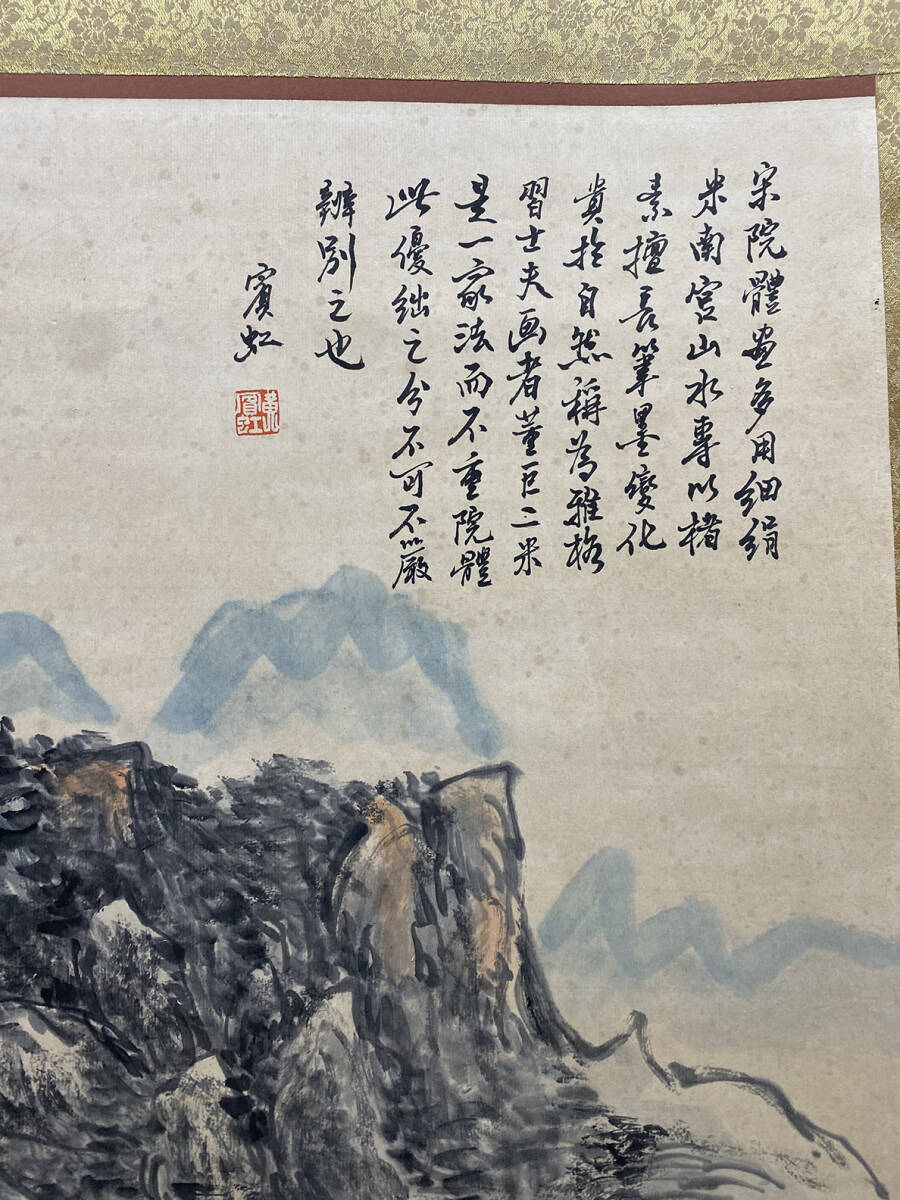 宋院體画多用細絹
米南宮山水專以楮
素擅長筆墨變化
貴於自然稱為雅格
習士夫画者董巨二米
是一家法而不重院體
此優絀之分不可不嚴
辨別之也
賓虹
黄賓虹